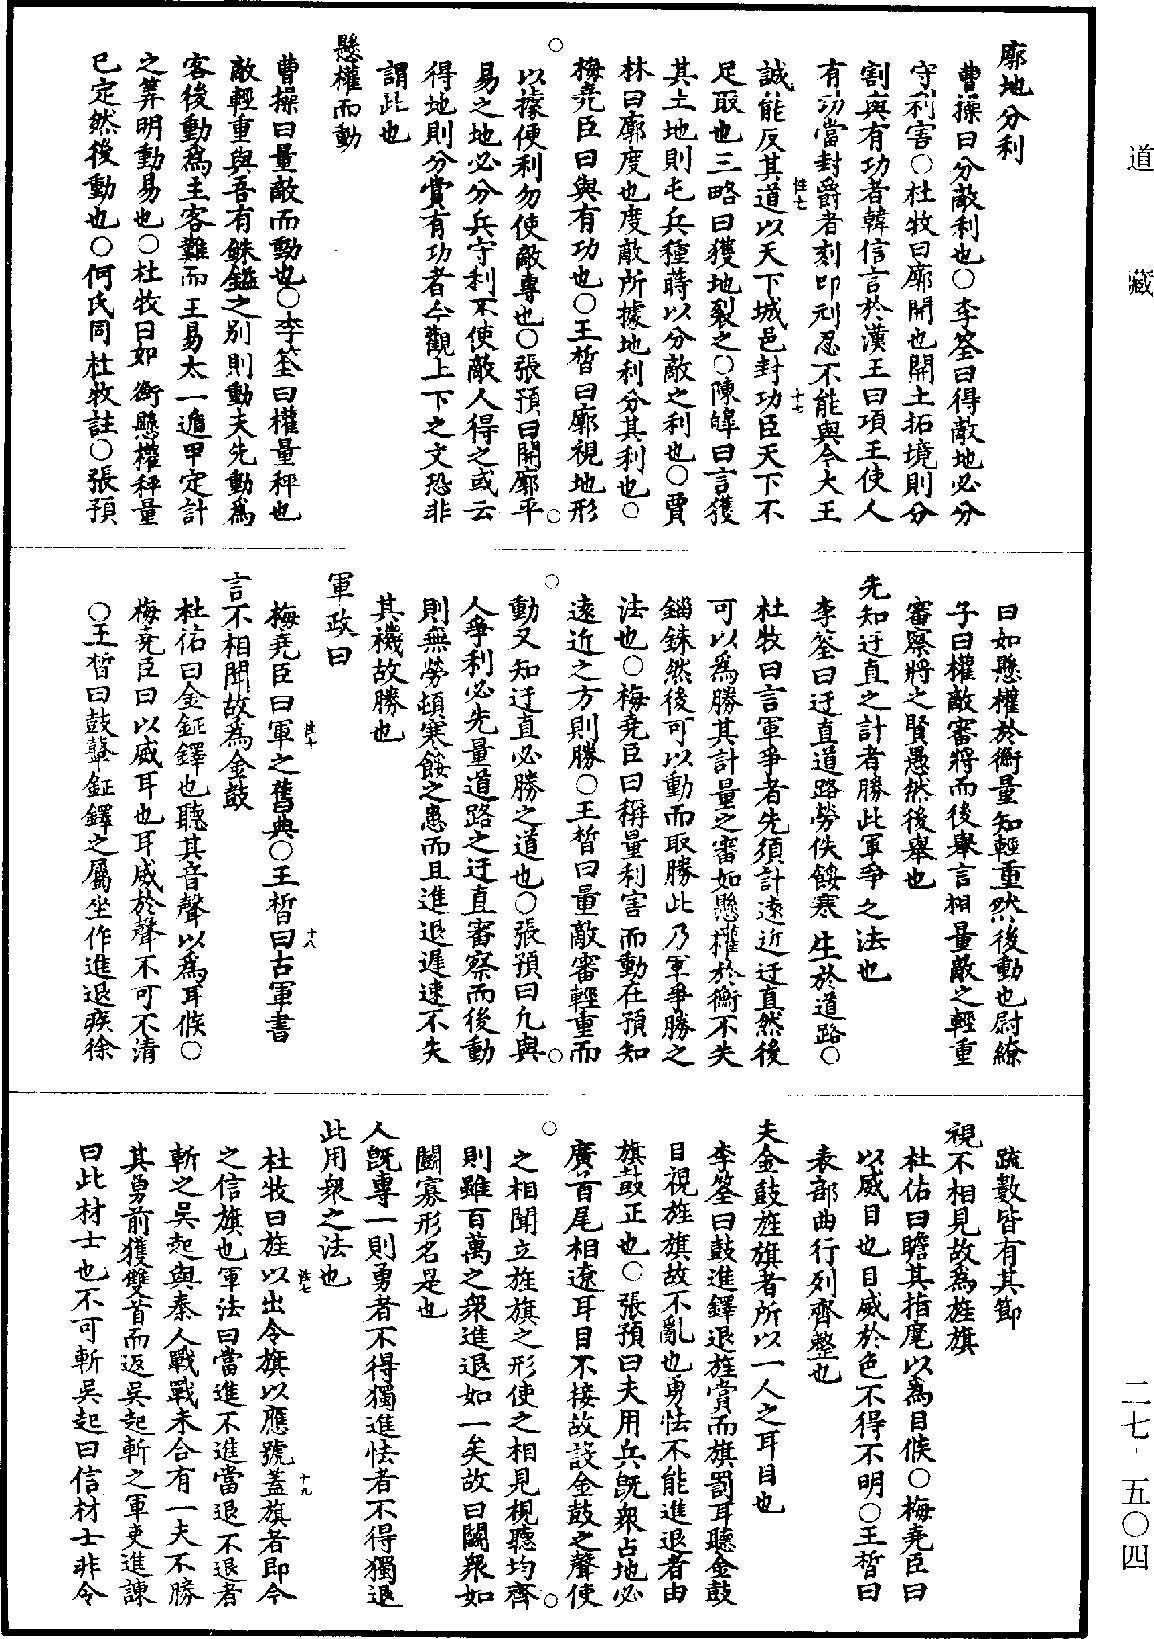 道藏
二七-五〇四
廓地分利
曹操曰分敵利也○李筌曰得敵地必分
守利害○杜牧曰廓開也開土拓境則分
割與有功者韓信言於漢王曰項王使人
有功當封爵者刻印刓忍不能與今大王
誠能反其道以天下城邑封功臣天下不
足取也三略曰獲地裂之○陳皥曰言獲
其土地則屯兵種蒔以分敵之利也○賈
林曰廓度也度敵所據地利分其利也○
梅堯臣曰與有功也○王晳曰廓視地形
以據便利勿使敵專也○張預曰開廓平
易之地必分兵守利不使敵人得之或云
得地則分賞有功者今觀上下之文恐非
謂此也
懸權而動
曹操曰量敵而動也○李筌曰權量秤也
敵輕重與吾有銖鎰之別則動夫先動為
客後動為主客難而主易太一遁甲定計
之筭明動易也○杜牧曰如衡懸權秤量
已定然後動也○何氏同杜牧註○張預
曰如懸權於衡量知輕重然後動也尉繚
子曰權敵審將而後舉言相量敵之輕重
審察將之賢愚然後舉也
先知迂直之計者勝此軍爭之法也
李筌曰迂直道路勞佚餒寒生於道路○
杜牧曰言軍爭者先須計遠近迂直然後
可以為勝其計量之審如懸權於衡不失
錙銖然後可以動而取勝此乃軍爭勝之
法也○梅堯臣曰稱量利害而動在預知
遠近之方則勝○王晳曰量敵審輕重而
動又知迂直必勝之道也○張預曰凡與
人爭利必先量道路之迂直審察而後動
則無勞頓寒餒之患而且進退遲速不失
其機故勝也
軍政曰
梅堯臣曰軍之舊典○王晳曰古軍書
言不相聞故為金鼓
杜佑曰金鉦鐸也聽其音聲以為耳候○
梅堯臣曰以威耳也耳威於聲不可不清
○王晳曰鼓鼙鉦鐸之屬坐作進退疾徐
疏數皆有其節
視不相見故為旌旗
杜佑曰瞻其指麾以為目候○梅堯臣曰
以威目也目威於色不得不明○王晳曰
表部曲行列齊整也
夫金鼓旌旗者所以一人之耳目也
李筌曰鼓進鐸退旌賞而旗罰耳聽金鼓
目視旌旗故不亂也勇怯不能進退者由
旗鼓正也○張預曰夫用兵既衆占地必
廣首尾相遼耳目不接故設金鼓之聲使
之相聞立旌旗之形使之相見視聽均齊
則雖百萬之衆進退如一矣故曰鬬衆如
鬬寡形名是也
人既專一則勇者不得獨進怯者不得獨退
此用衆之法也
杜牧曰旌以出令旗以應號蓋旗者即今
之信旗也軍法曰當進不進當退不退者
斬之吳起與秦人戰戰未合有一夫不勝
其勇前獲雙首而返吳起斬之軍吏進諫
曰此材士也不可斬吳起曰信材士非令